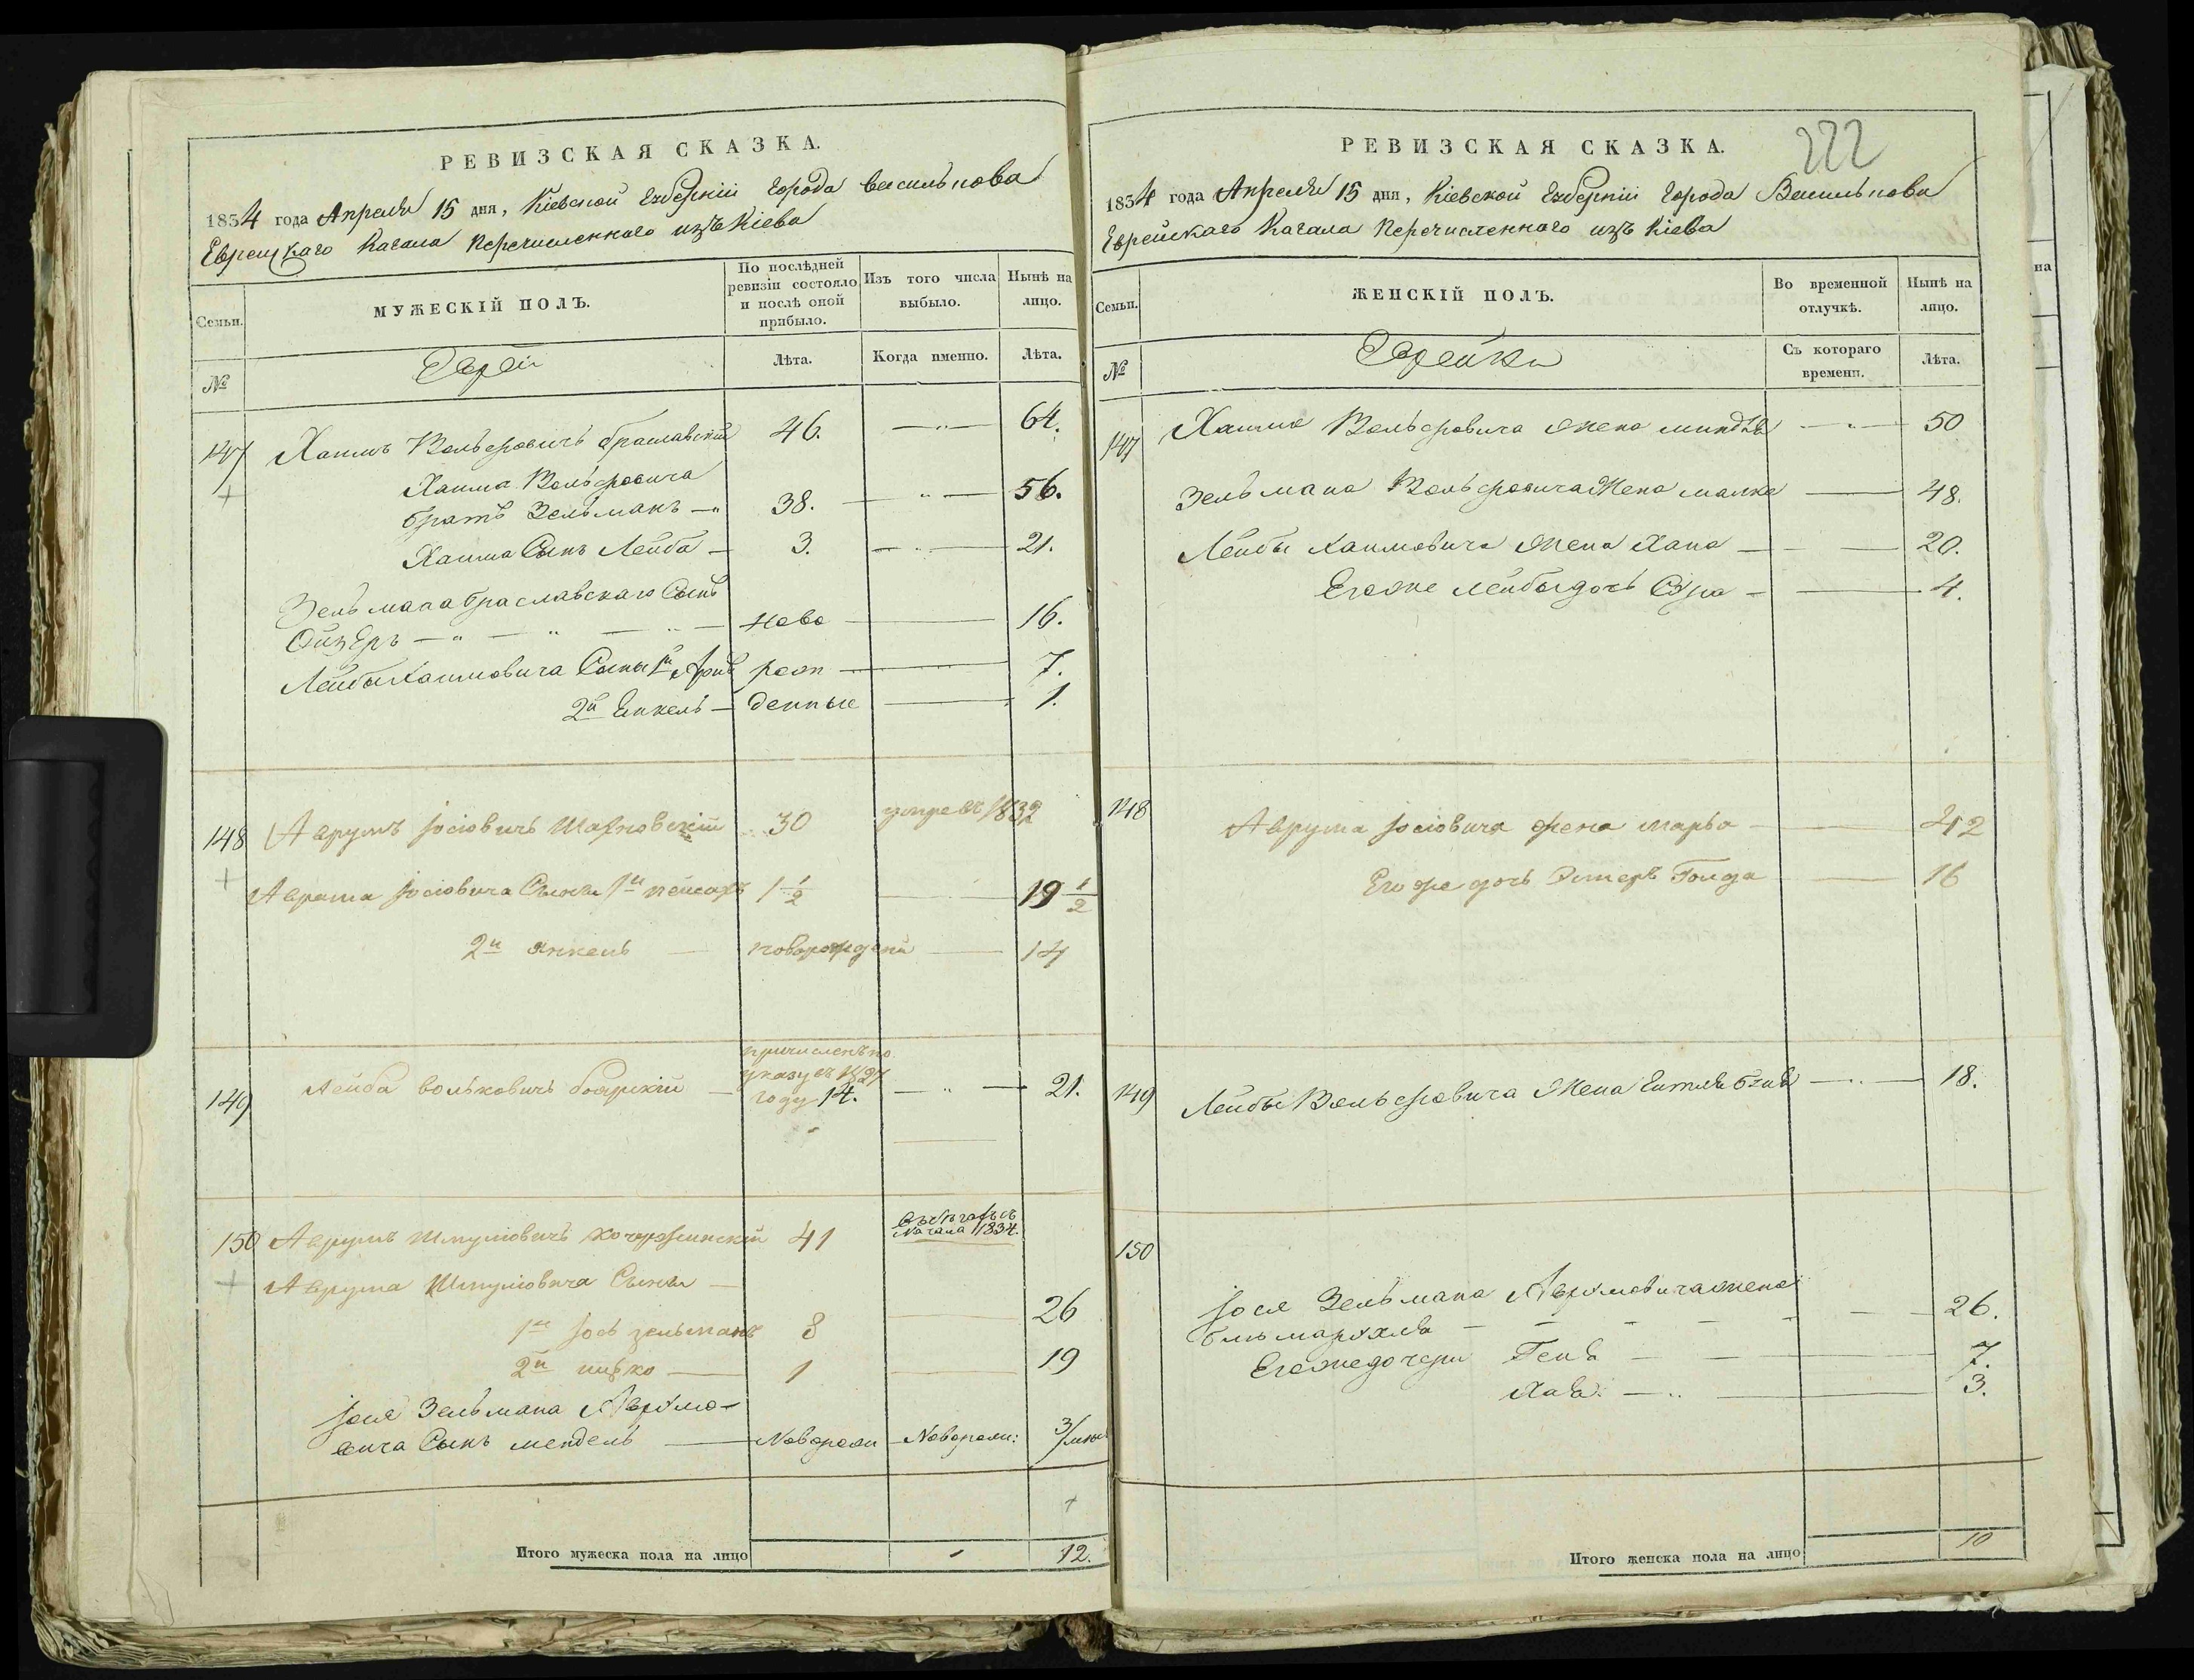 РЕВИЗСКАЯ СКАЗКА.
1834 года Апреля 15 дня, Кіевской Губерніи Города Василькова
Еврейскаго Кагала Перечисленнаго изъ Кіева
Семьи.
МУЖЕСКІЙ ПОЛЪ.
По послѣдней ревизіи состояло и послѣ оной прибыло.
Изъ того числа выбыло.
Нынѣ на лицо.
№
Евреи
Лѣта.
Когда именно.
Лѣта.
147 Хаимъ Вольфовичъ Браславскій 46. — 64.
Хаима Вольфовича
братъ Зельманъ — 38. — 56.
Хаима Сынъ Лейба — 3. — 21.
Зельмана Браславскаго Сынъ
Ойзеръ — ново — 16.
Лейбы Хаимовича Сыны 1й рож — 7.
2й Енкель — денные — 1.
148 Аврумъ Іосіовичъ 30 умре въ 1832
Аврама Іосіовича Сыны 1й пейсахъ 1 1/2 — 19 1/2
2й янкель — новорожденный — 14
149 Лейба вольковичъ боярскій — причисленъ по
указу въ 1827
году 14. — 21.
150 Аврумъ Шмуліовичъ 41
Начала 1834.
Аврума Шмуліовича Сыны —
1й Іось зельманъ 8 — 26
2й ицко — 1 — 19
Іося Зельмана Аврумо-
вича Сынъ мендель — Новорож — Новорож: 3/
Итого мужеска пола на лицо 12.
РЕВИЗСКАЯ СКАЗКА.
222
1834 года Апреля 15 дня, Кіевской Губерніи Города Василькова
Еврейскаго Кагала Перечисленнаго изъ Кіева
Семьи.
ЖЕНСКІЙ ПОЛЪ.
Во временной отлучкѣ.
Нынѣ на лицо.
№
Еврейки
Съ котораго времени.
Лѣта.
147 Хаима Вольфовича Жена миндля — 50
Зельмана Вольфовича Жена малка — 48.
Лейбы Хаимовича Жена Хана — 20.
Его же Лейбы дочь Сура — 4.
148
Аврума Іосіовича жена марья — 42
Его же дочь Эстеръ Голда — 16
149 Лейбы Вольфовича Жена — 18.
150
Іося Зельмана Аврумовича жена
— 26.
Его же дочери Геня — 7.
Хая — 3.
Итого женска пола на лицо 10